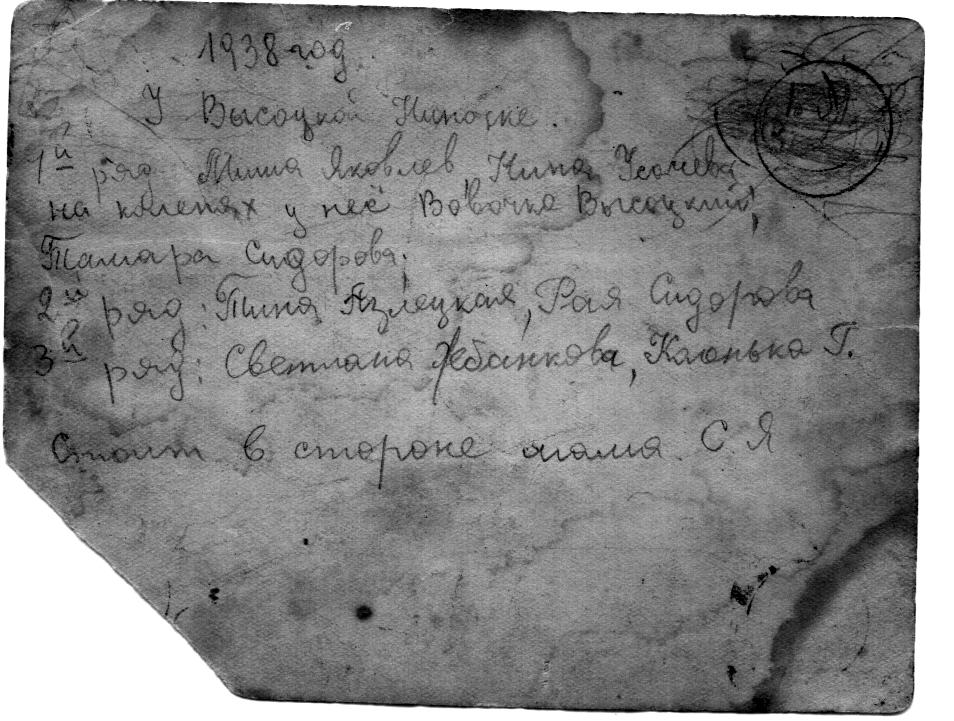 1938 год.
У Высоцкой Ниночке.
1й ряд Миша Яковлев, Нина Усачева
на коленях у неё Вовочка Высоцкий,
Тамара Сидорова;
2й ряд: Тина Язлецкая, Рая Сидорова
3й ряд: Светлана Жебанкова, Клонька Г.
Стоит в стороне мама С. Я